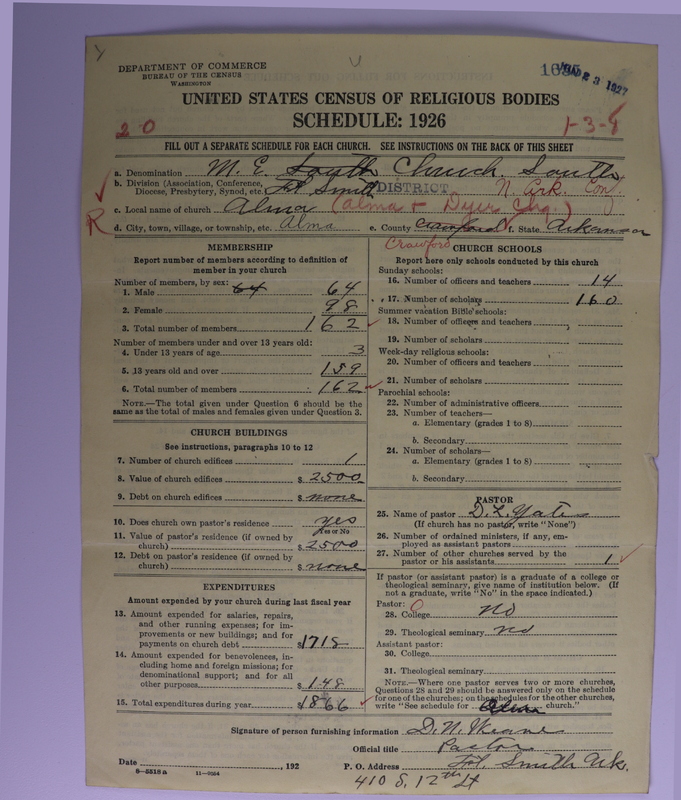 DEPARTMENT OF COMMERCE
BUREAU OF THE CENSUS
WASHINGTON
UNITED STATES CENSUS OF RELIGIOUS BODIES
SCHEDULE: 1926
20
1-3-8
FILL OUT A SEPARATE SCHEDULE FOR EACH CHURCH. SEE INSTRUCTIONS ON THE BACK OF THIS SHEET
a. Denomination M. E. South Church, South
b. Division (Association, Conference, Diocese, Presbytery, Synod, etc. Ft. Smith DISTRICT N. Ark. Con.
c. Local name of church Alma (Alma + Dyer Chg.)
R
d. City, town, village, or township, etc. Alma e. County Crawford f. State Arkansas
Crawford
MEMBERSHIP
Report number of members according to definition of member in your church
Number of members, by sex: 64
1. Male 64
2. Female 98
3. Total number of members 162
Number of members under and over 13 years old:
4. Under 13 years of age 3
5. 13 years old and over 159
6. Total number of members 162
NOTE.—The total given under Question 6 should be the same as the total of males and females given under Question 3.
CHURCH BUILDINGS
See instructions, paragraphs 10 to 12
7. Number of church edifices 1
8. Value of church edifices $ 2500
9. Debt on church edifices $ none
10. Does church own pastor's residence yes
Yes or No
11. Value of pastor's residence (if owned by church) $ 2500
12. Debt on pastor's residence (if owned by church) $ none
EXPENDITURES
Amount expended by your church during last fiscal year
13. Amount expended for salaries, repairs, and other running expenses; for improvements or new buildings; and for payments on church debt $ 1718
14. Amount expended for benevolences, including home and foreign missions; for denominational support; and for all other purposes $ 148
15. Total expenditures during year $ 1866
CHURCH SCHOOLS
Report here only schools conducted by this church
Sunday schools:
16. Number of officers and teachers 14
17. Number of scholars 160
Summer vacation Bible schools:
18. Number of officers and teachers
19. Number of scholars
Week-day religious schools:
20. Number of officers and teachers
21. Number of scholars
Parochial schools:
22. Number of administrative officers
23. Number of teachers—
a. Elementary (grades 1 to 8)
b. Secondary
24. Number of scholars—
a. Elementary (grades 1 to 8)
b. Secondary
PASTOR
25. Name of pastor D. L. Yates
(If church has no pastor, write "None")
26. Number of ordained ministers, if any, employed as assistant pastors
27. Number of other churches served by the pastor or his assistants 1
If pastor (or assistant pastor) is a graduate of a college or theological seminary, give name of institution below. (If not a graduate, write "No" in the space indicated.)
Pastor: 0
28. College no
29. Theological seminary no
Assistant pastor:
30. College
31. Theological seminary
NOTE.—Where one pastor serves two or more churches, Questions 28 and 29 should be answered only on the schedule for one of the churches; on the schedules for the other churches, write "See schedule for Alma church."
Signature of person furnishing information D. N.
Official title Pastor
Date , 192 P. O. Address Ft. Smith Ark.
9-5518a 11-9554
410 S. 12th St